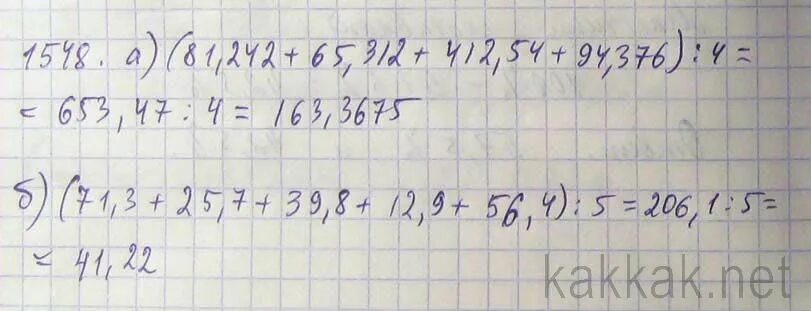 1548. а) (81,242 + 65,312 + 412,54 + 94,376) : 4 =
= 653,47 : 4 = 163,3675
б) (71,3 + 25,7 + 39,8 + 12,9 + 56,4) : 5 = 206,1 : 5 =
= 41,22
kakkak.net